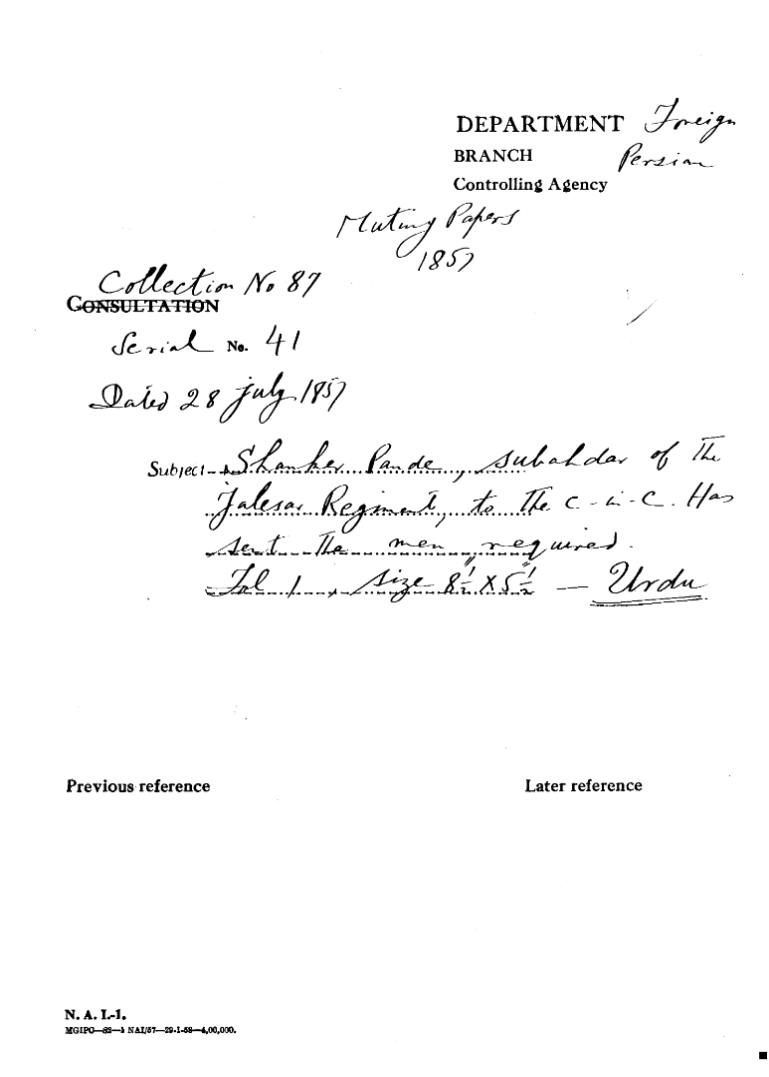 DEPARTMENT Foreign
BRANCH Persian
Controlling Agency
Mutiny Papers
1857
Collection No 87
CONSULTATION
Serial No. 41
Dated 28 July 1857
Subject Shanker Pande, subahdar of the
Jalesar Regiment, to the C-in-C. Has
sent the men required.
Fol 1, size 8½" X 5½" — Urdu
Previous reference Later reference
N. A. I.-1.
MGIPC—82—1 NAI/57—29-1-58—4,00,000.